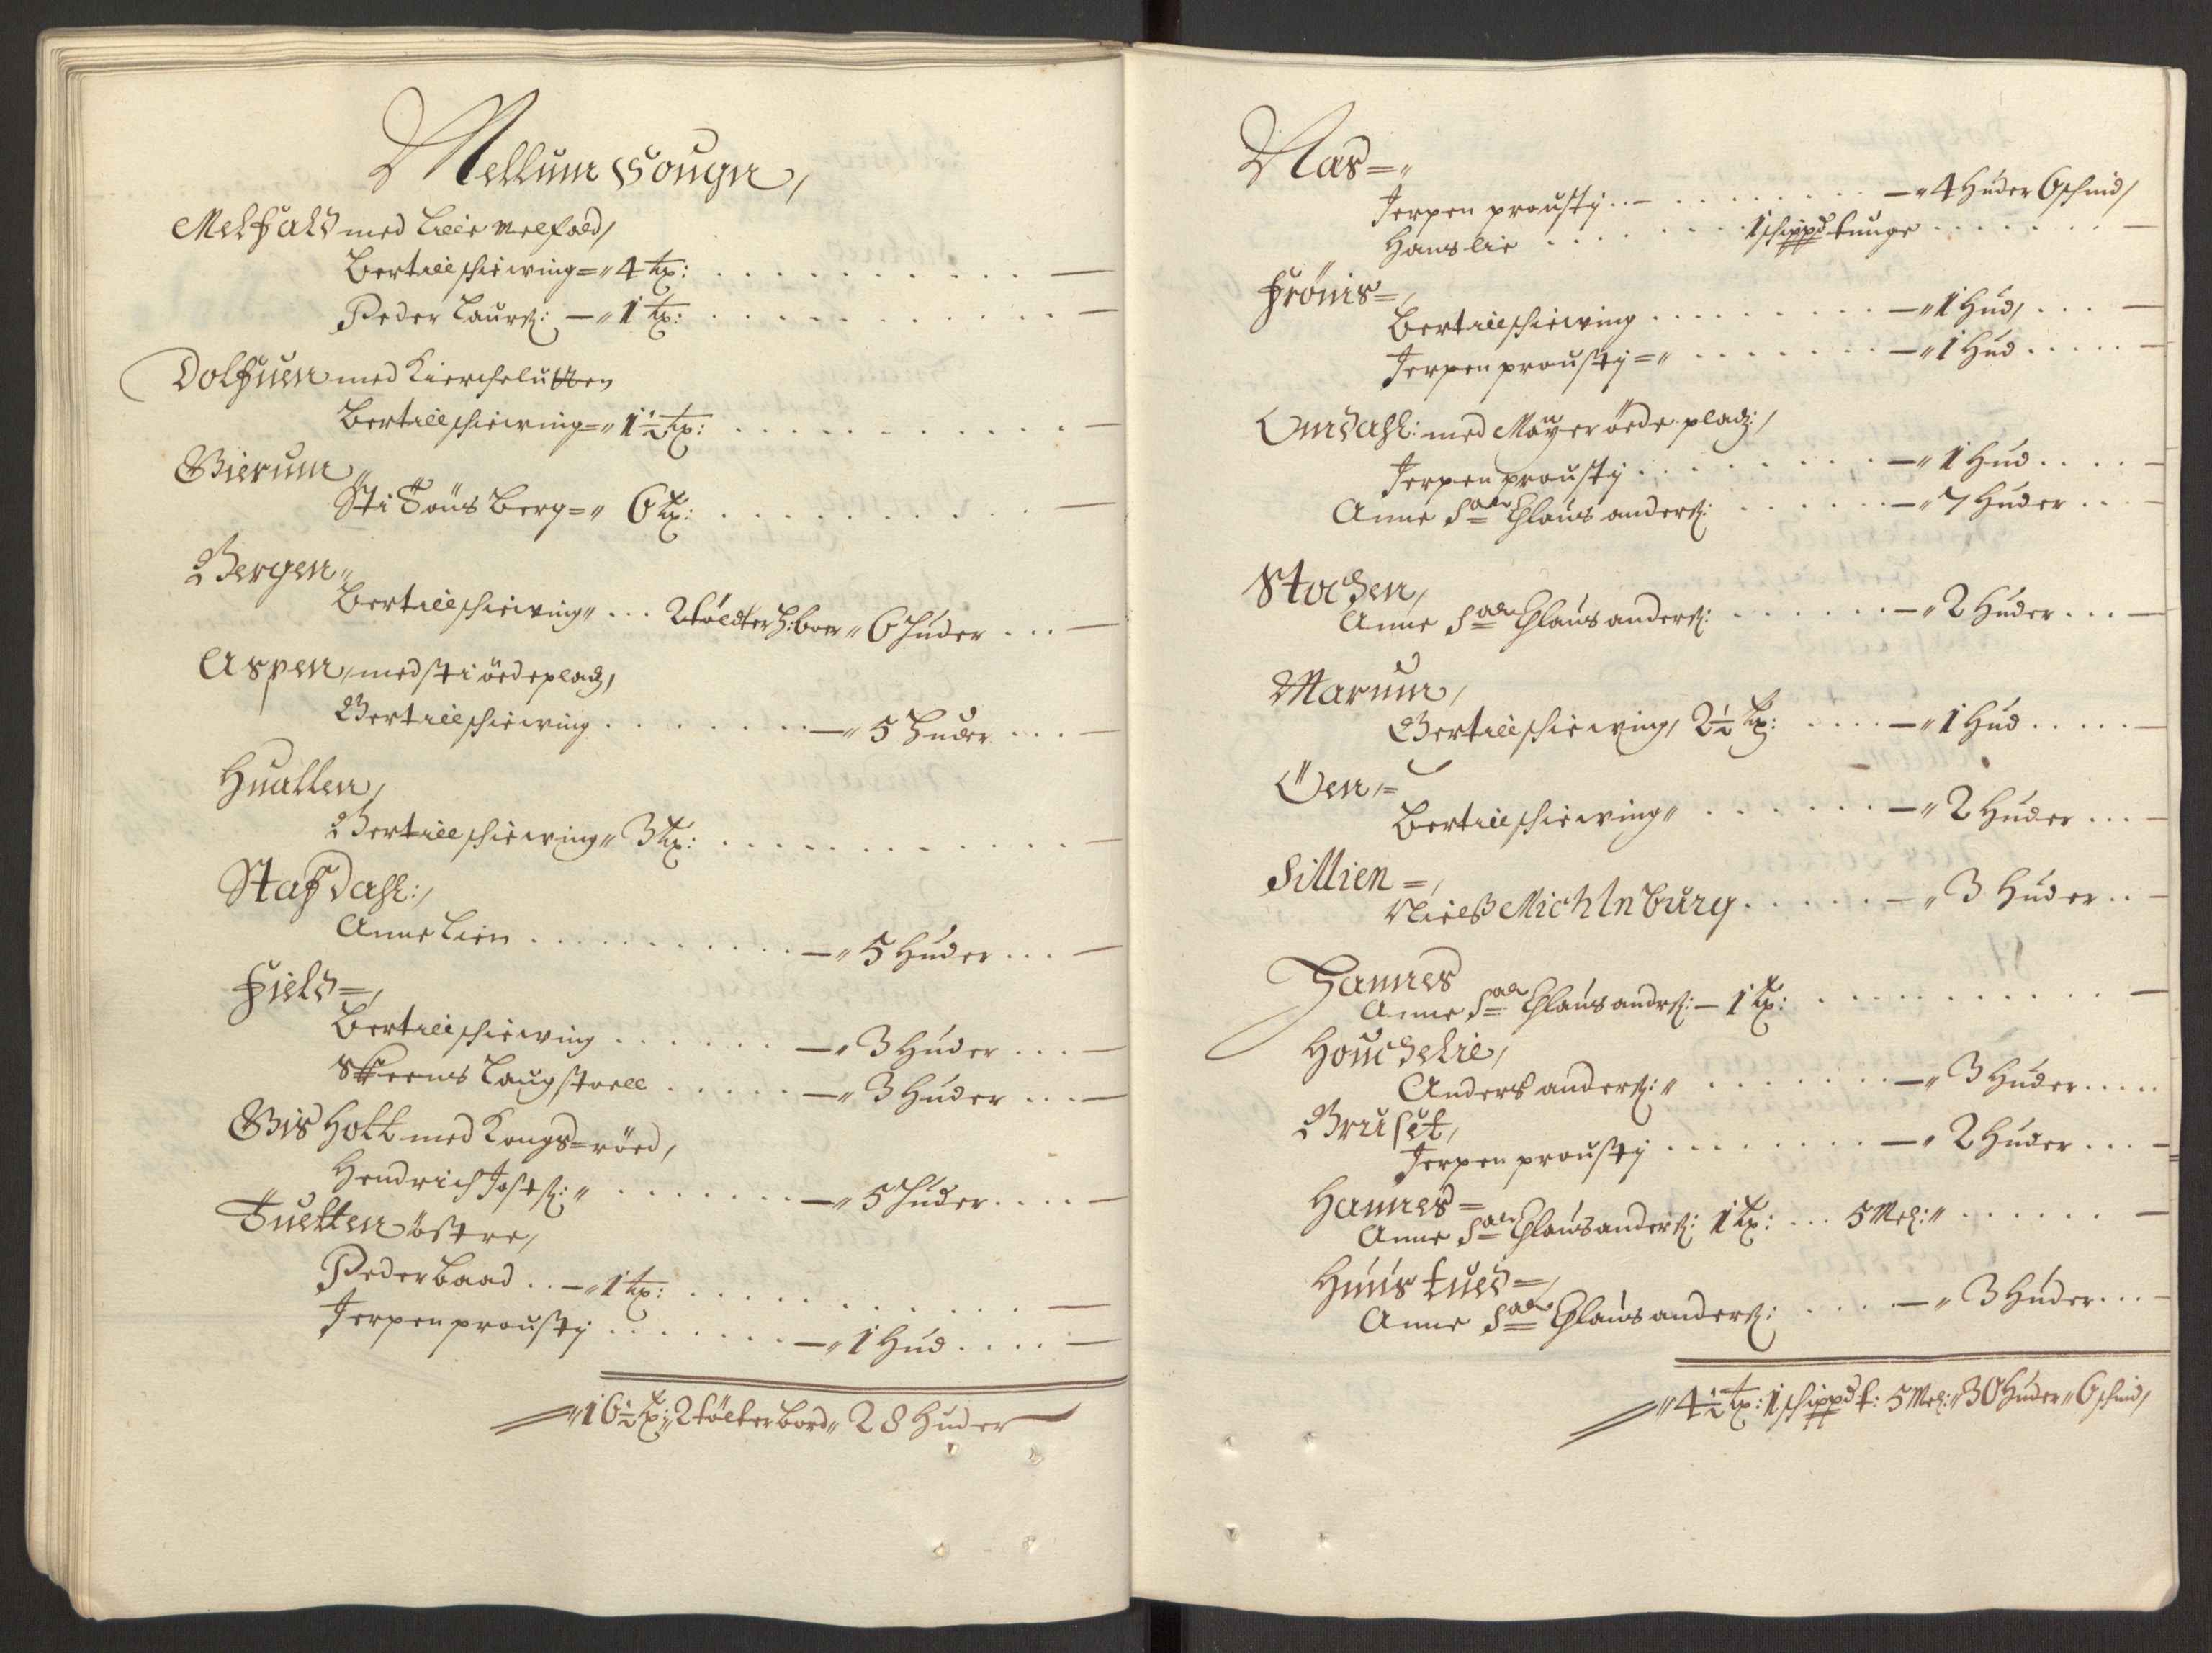 Mellum Sougn,
Melfald med Lille Melfald,
Bertell schiewing =" 4 tx: — 
Peder Laurß: — " 1 tx: —
Dolfuen med Kierchelutten
Bertell schiewing =" 1 1/2 tx: —
Bierum,
Sti Tönsberg =" 6 tx: —
Bergen"
Bertell schiewing" 2 töldter h: boer " 6 huder —
Aspen, med sti öedepladz,
Bertell schiewing — " 5 huder —
Huallen,
Bertell schiewing" 3 tx: —
Stafdahl:,
Anne Lien — " 5 Huder —
Field =,
Bertell schiewing — " 3 Huder —
Skeens Laugstoell — " 3 Huder —
Bisholt med Kongs=röed,
Hendrich Jostß: " — " 5 huder —
Tuetten östre,
Peder baad — " 1 tx: —
Jerpen prousty — " 1 Hud —
" 16 1/2 tx: " 2 tölter bord " 28 Huder
Nas ="
Jerpen prousty — " 4 Huder 6 schind,
Hans lie 1 schippd tunge —
Frönis =,
Bertell schiewing — " 1 Hud, —
Jerpen prousty =" — " 1 Hud —
Omdahl: med Moyer öede pladz:,
Jerpen prousty — " 1 Hud —
Anne Sal Claus anderß: — " 7 Huder —
Stochen,
Anne Sal Claus anderß: — " 2 Huder —
Marum,
Bertell schiewing, 2 1/2 tx: — " 1 Hud —
Öen, =
Bertell schiewing" — " 2 Huder —
Sillien =,
Nielß Michlnburg — " 3 Huder —
Hannes
Anne Sal Claus andrß: — 1 tx: —
Houchelie,
Anders anderß: " — " 3 Huder
Bruset,
Jerpen prousty — " 2 Huder —
Hannes =
Anne Sal Claus anderß: 1 tx: 5 Mrk: " —
Huus tued =,
Anne Sal Claus anderß: — " 3 Huder —
" 4 1/2 tx: 1 schippd t: 5 Mrk: " 30 Huder " 6 schind,